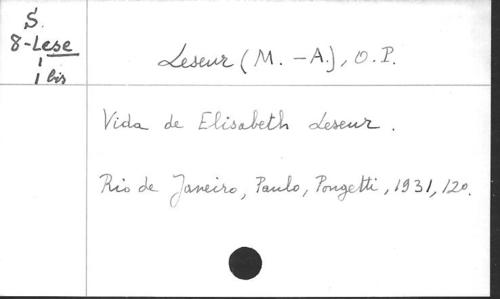 S.
8-Lese
1
1 bis
Leseur (M. -A.), O.P.
Vida de Elisabeth Leseur.
Rio de Janeiro, Paulo, Pongetti, 1931, 120.